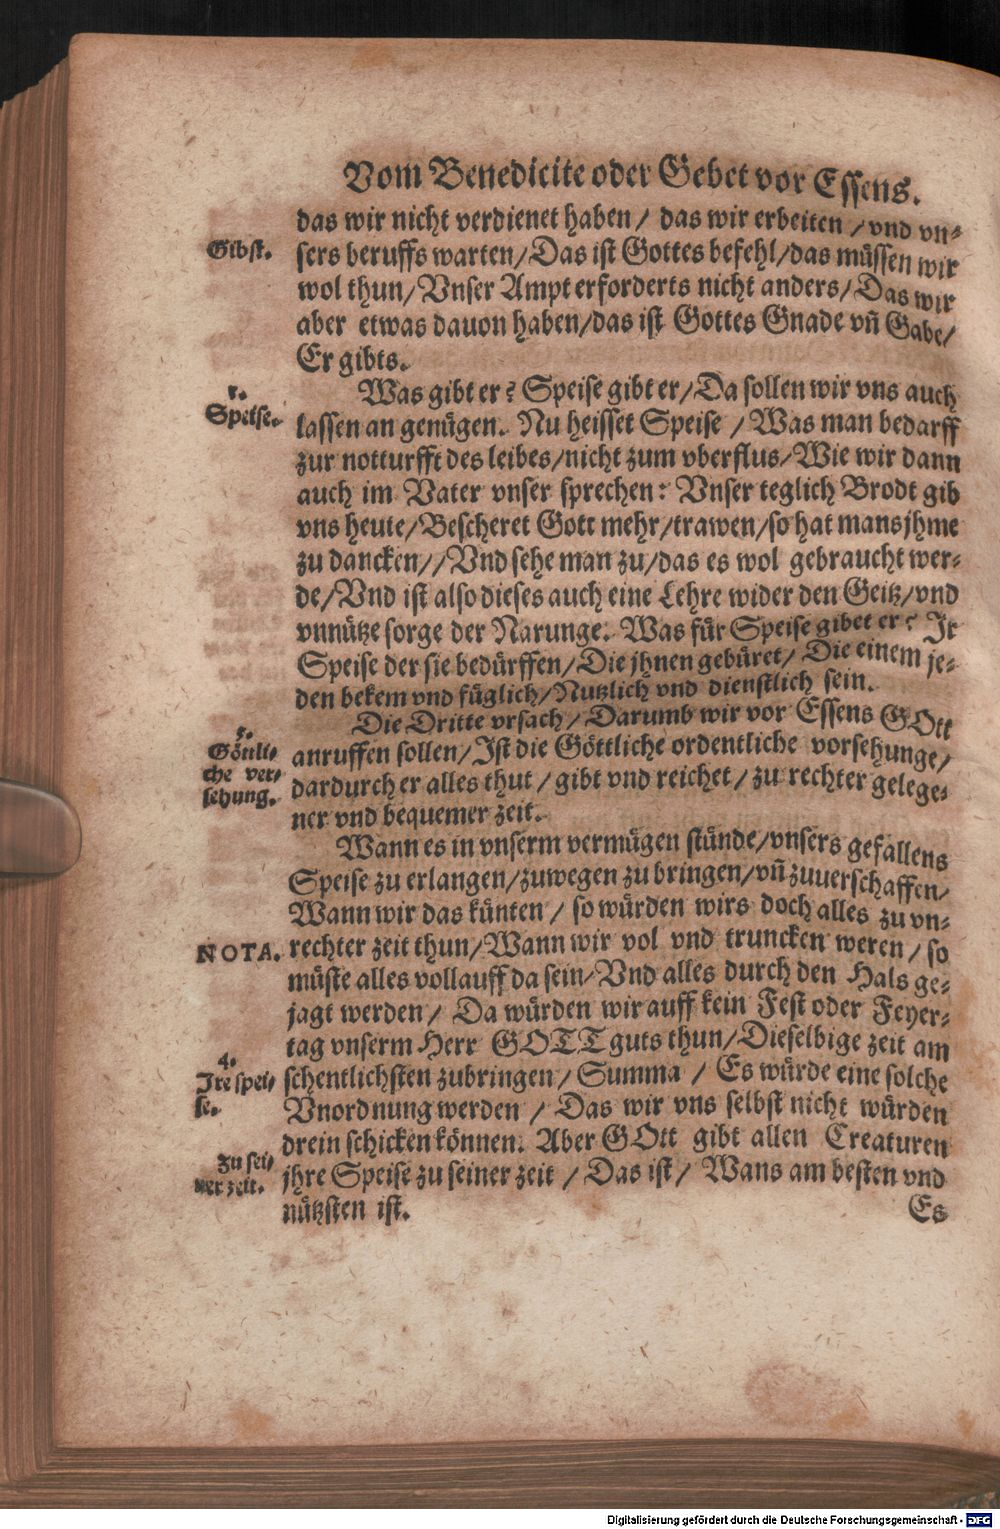 Vom Benedicite oder Gebet vor Essens.
das wir nicht verdienet haben / das wir erbeiten / vnd vn-
Gibst.
sers beruffs warten/Das ist Gottes befehl/das müssen wir
wol thun/Vnser Ampt erforderts nicht anders/Das wir
aber etwas dauon haben/das ist Gottes Gnade vñ Gabe/
Er gibts.
Was gibt er? Speise gibt er/Da sollen wir vns auch
Speise.
lassen an genügen. Nu heisset Speise / Was man bedarff
zur notturfft des leibes/nicht zum vberflus/Wie wir dann
auch im Vater vnser sprechen: Vnser teglich Brodt gib
vns heute/Bescheret Gott mehr/trawen/so hat mans jhme
zu dancken//Vnd sehe man zu/das es wol gebraucht wer-
de/Vnd ist also dieses auch eine Lehre wider den Geitz/vnd
vnnütze sorge der Narunge. Was für Speise gibet er? Ir
Speise der sie bedürffen/Die jhnen gebüret/ Die einem je-
den bekem vnd füglich/Nutzlich vnd dienstlich sein.
Die Dritte vrsach/Darumb wir vor Essens GOtt
Göttli-
che ver-
sehung.
anruffen sollen/Ist die Göttliche ordentliche vorsehunge/
dardurch er alles thut / gibt vnd reichet / zu rechter gelege-
ner vnd bequemer zeit.
Wann es in vnserm vermügen stünde/vnsers gefallens
Speise zu erlangen/zuwegen zu bringen/vñ zuuerschaffen/
Wann wir das künten / so würden wirs doch alles zu vn-
NOTA.
rechter zeit thun/Wann wir vol vnd truncken weren / so
müste alles vollauff da sein/Vnd alles durch den Hals ge-
jagt werden / Da würden wir auff kein Fest oder Feyer-
tag vnserm Herr GOTT guts thun/Dieselbige zeit am
4.
Ire spei-
se.
schentlichsten zubringen/ Summa / Es würde eine solche
Vnordnung werden / Das wir vns selbst nicht würden
drein schicken können. Aber GOtt gibt allen Creaturen
Zu sei-
ner zeit.
jhre Speise zu seiner zeit / Das ist / Wans am besten vnd
nützsten ist.
Es
Digitalisierung gefördert durch die Deutsche Forschungsgemeinschaft - DFG